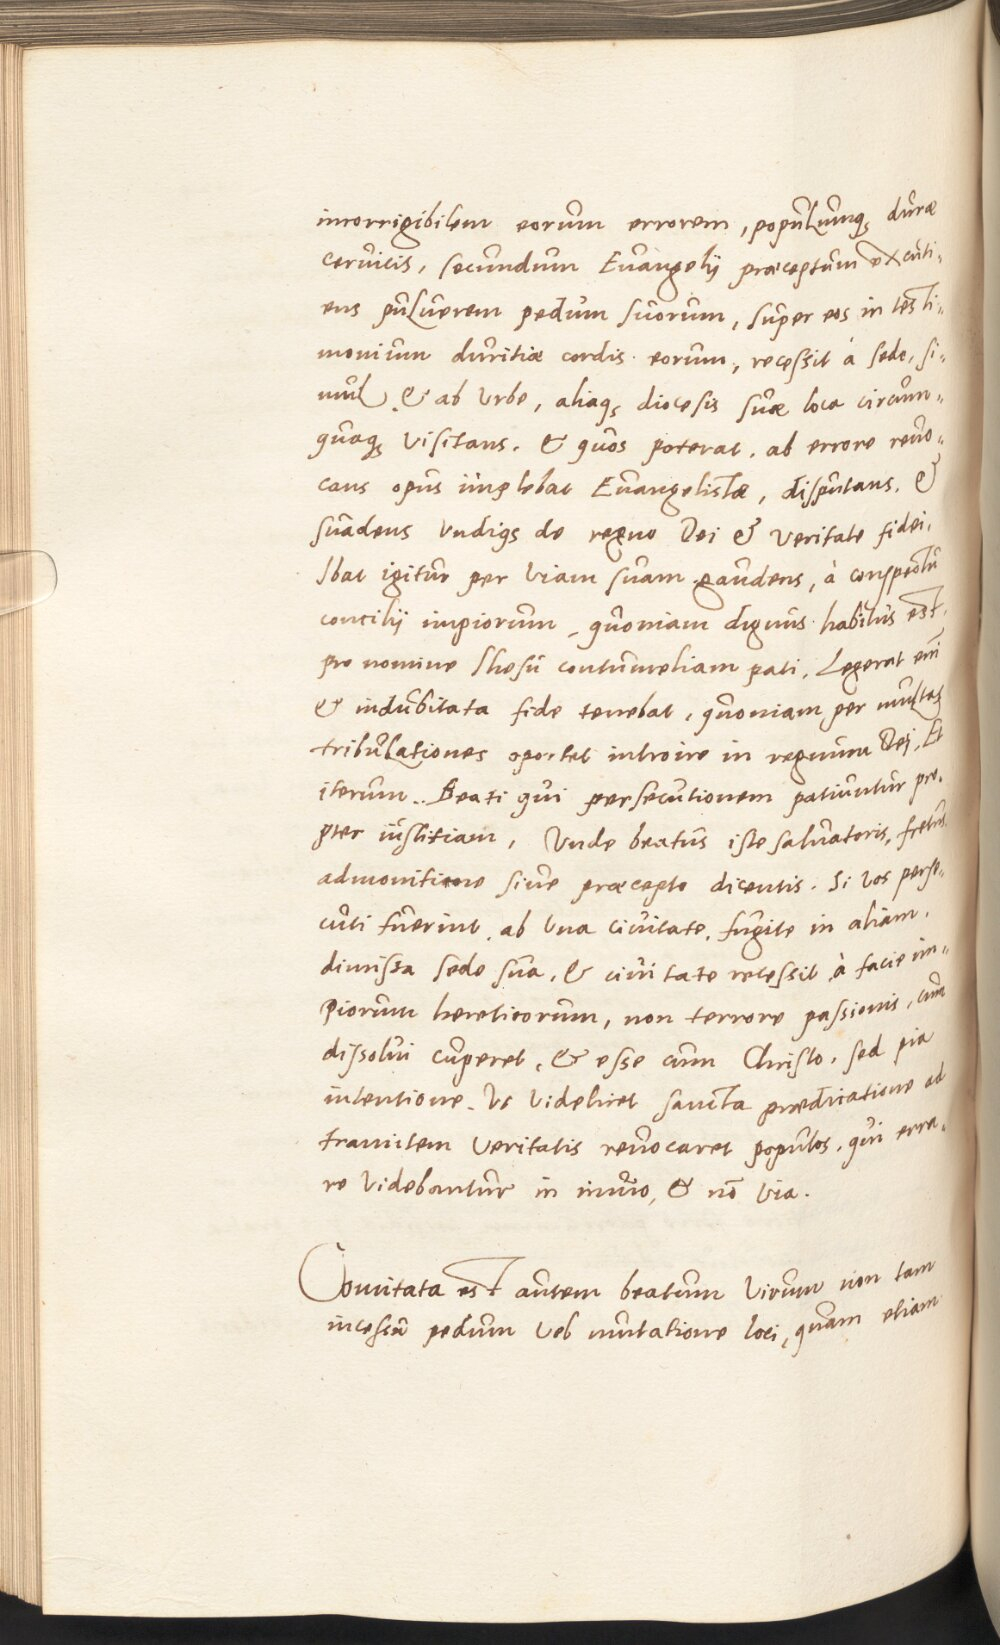 incorrigibilem eorum errorem, populumq; duræ
ceruicis, secundum Euangelij præceptum excuti,,
ens puluerem pedum suorum, super eos in testi,,
monium duritiæ cordis eorum, recessit à sede, si,,
mul & ab Vrbe, aliaq; diocesis suæ loca circum,,
quaq; visitans. & quos poterat. ab errore reuo,,
cans opus implebat Euangelistæ, disputans. &
suadens Vndiq; de regno Dei & veritate fidei.
Ibat igitur per viam suam gaudens, à conspectu
concilij impiorum, quoniam dignus habitus est.
pro nomine Ihesu contumeliam pati. Legerat em̃
& indubitata fide tenebat, quoniam per multas
tribulationes oportet introire in regnum Dei. Et
iterum.. Beati qui persecutionem patiuntur pro,,
pter iustitiam, Vnde beatus iste saluatoris, fretus
admonitione siue præcepto dicentis. Si vos perse,,
cuti fuerint, ab vna ciuitate, fugite in aliam.
dimissa sede sua, & ciuitate recessit à facie im,,
piorum hereticorum, non terrore passionis, cum
dissolui cuperet, & esse cum Christo. sed pia
intentione. Vt videlicet sancta prædicatione ad
tramitem veritatis reuocaret populos. qui erra,,
re videbantur in inuio, & nō via.
Comitata est autem beatum virum non tam
incessu pedum vel mutatione loci, quam etiam